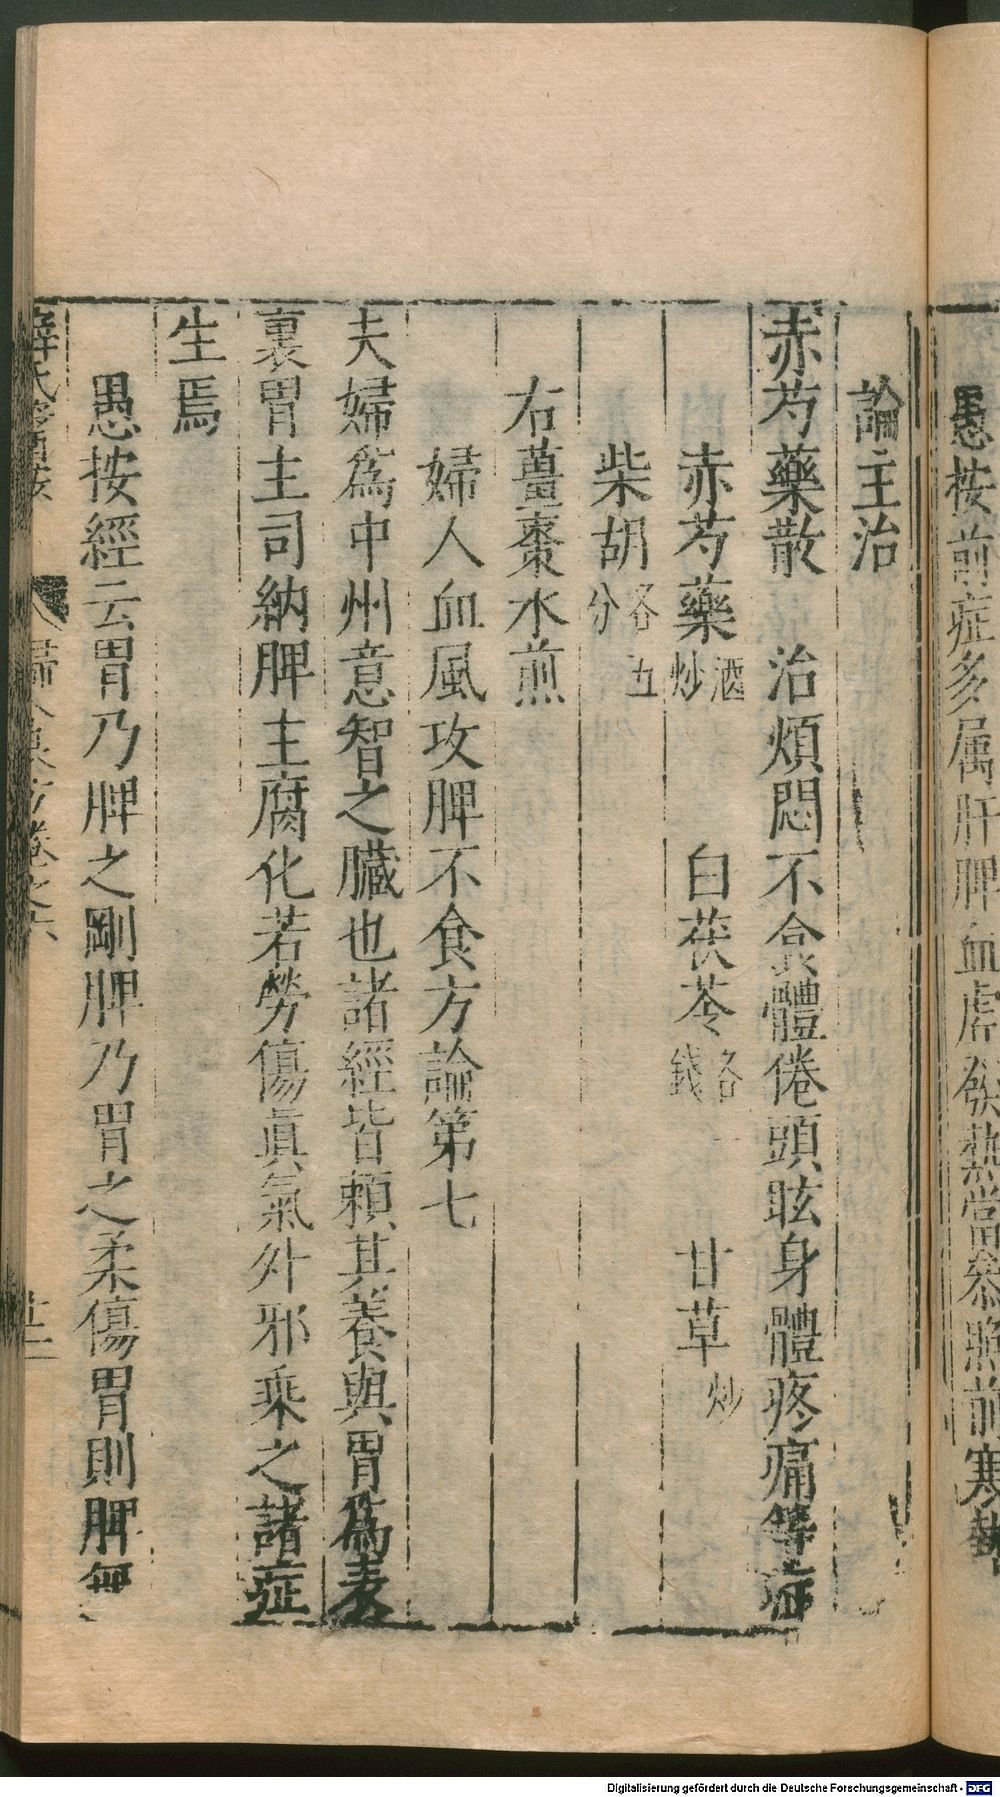 愚按前症多属肝脾血虚發熱當叅照前寒熱
論主治
赤芍藥散　治煩悶不食體倦頭眩身體疼痛等症
赤芍藥酒炒　白茯苓各一錢　甘草炒
柴胡各五分
右薑棗水煎
婦人血風攻脾不食方論第七
夫婦爲中州意智之臟也諸經皆賴其養與胃爲表
裏胃主司納脾主腐化若勞傷眞氣外邪乘之諸症
生焉
愚按經云胃乃脾之剛脾乃胃之柔傷胃則脾無
薛氏醫按　婦人良方卷之六　廿二
Digitalisierung gefördert durch die Deutsche Forschungsgemeinschaft - DFG